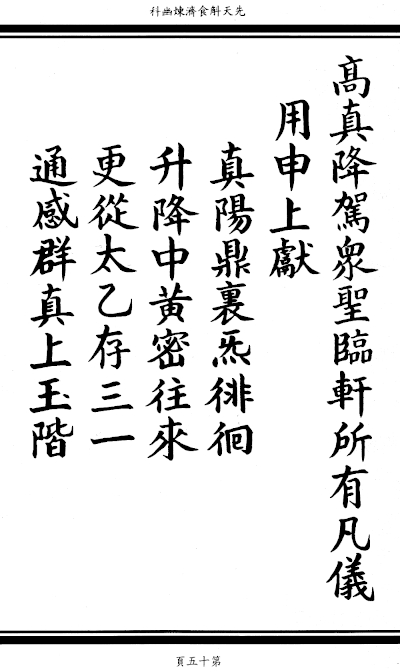 先天斛食濟煉幽科
高真降駕衆聖臨軒所有凡儀
用申上獻
真陽鼎裏炁徘徊
升降中黃密往來
更從太乙存三一
通感群真上玉階
第十五頁